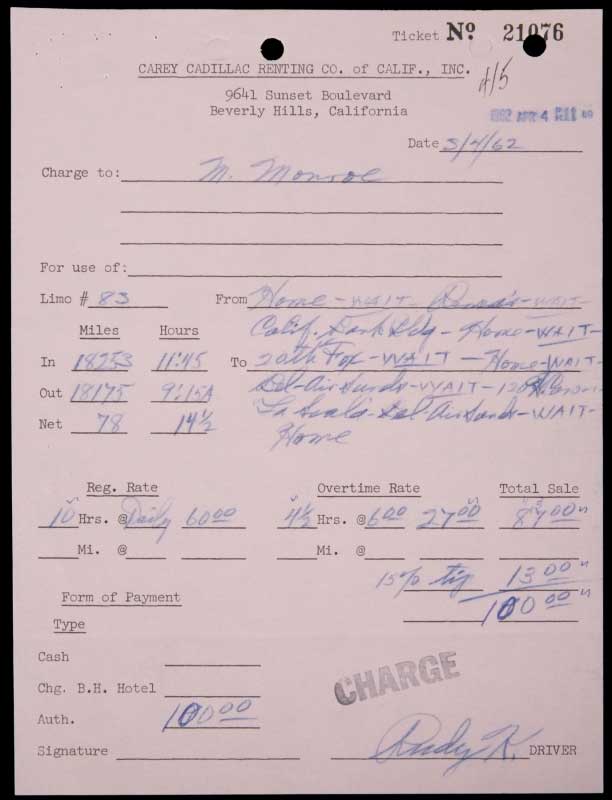 Ticket Nº 21076
CAREY CADILLAC RENTING CO. of CALIF., INC.
4/5
9641 Sunset Boulevard
Beverly Hills, California
1962 APR 4
Date 3/4/62
Charge to: M. Monroe
For use of:
Limo # 83 From Home - WAIT - - WAIT -
Miles Hours Calif. Bank Bldg - Home - WAIT -
In 18253 11:45 To 20th Fox - WAIT - Home - WAIT -
Out 18175 9:15A Bel-Air Sands - WAIT - 120
Net 78 14½ La Scala - Bel-Air Sands - WAIT -
Home
Reg. Rate Overtime Rate Total Sale
10 Hrs. @ Daily 60 00 4½ Hrs. @ 6 00 27 00 87 00
Mi. @ Mi. @
15% tip 13 00
Form of Payment 100 00
Type
Cash
Chg. B.H. Hotel
CHARGE
Auth. 100 00
Signature Rudy K. DRIVER